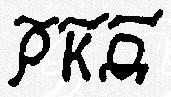 р҃к҃д҃